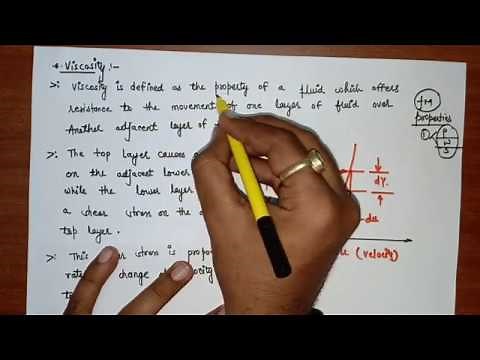 * Viscosity :-
>: Viscosity is defined as the property of a fluid which offers
resistance to the movement of one layer of fluid over
Another adjacent layer of
>: The top layer causes a
on the adjacent lower
while the lower layer
a shear stress on the
top layer.
>: This stress is propo
rate change
FM
properties
①
P
W
S
dy.
du
(velocity)